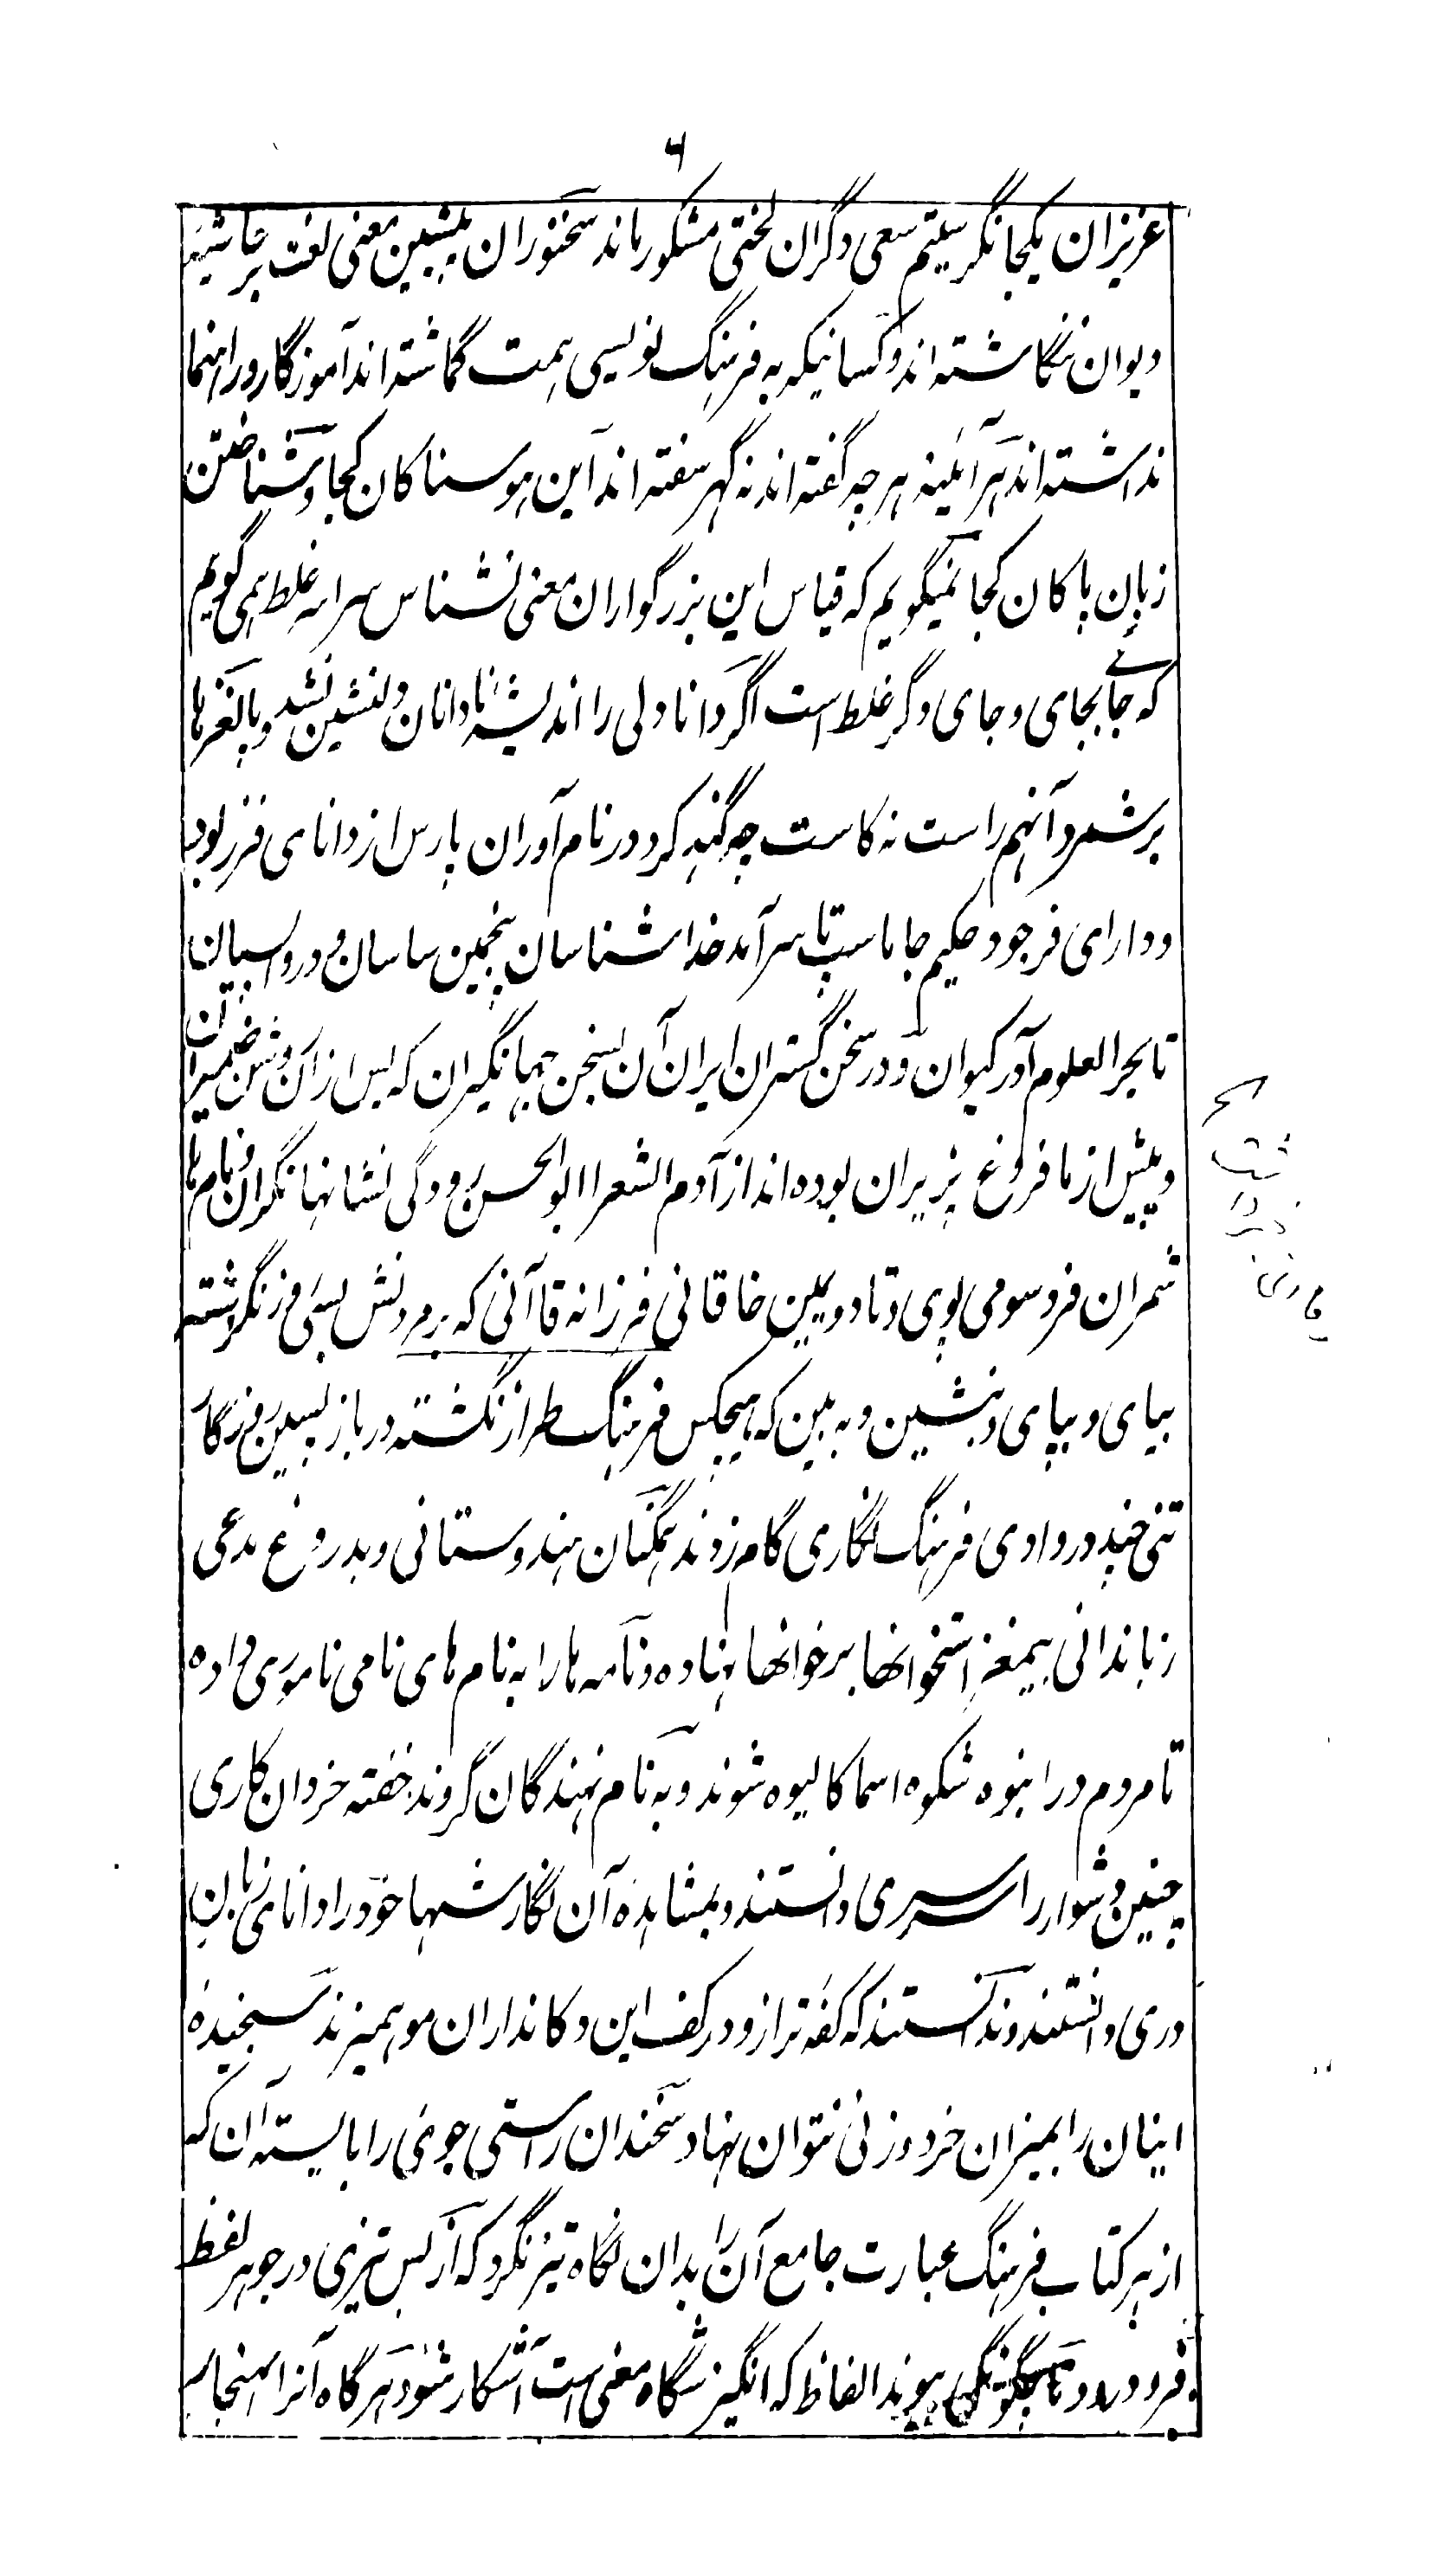 ۶
عزیزان یکجا نگریستیم سعی دگران لختی مشکور ماند سخنوران پیشین معنی لغت بر حاشیه
دیوان ننگاشته اند و کسانیکه به فرهنگ نویسی همت گماشته اند آموزگار و راهنما
نداشته اند هر آئینه هر چه گفته اند نه گهر سفته اند این هوسناکان کجا و شناختن
زبان پاکان کجا نمیگویم که قیاس این بزرگواران معنی نشناس سراسر غلط همی گویم
که جائے بجای و جای دگر غلط است اگر دانا دلی را اندیشهٔ نادانان دلنشین نشد و پالغزها
برشمرد آنهم راست نه کاست چه گنه کرد در نام آوران پارس از دانای فرزبود
و دارای فرجود حکیم جاماسپ تا سرآمد خداشناسان پنجمین ساسان و در واپسیان
تا بحر العلوم آذر کیوان و در سخن گستران ایران آن بسخن جهانگیران که پس از آن روشن ضمیران
و پیش از ما فروغ پذیران بوده اند از آدم الشعرا ابوالحسن رودگی نشانها نگران و نام ها
شمران فرد سومی پوی و تا دویمین خاقانی فرزانه قاآنی که برم دنش بسی فرز نگزشته
بیای و بپای و بنشین و به بین که هیچکس فرهنگ طراز نگشته در باز پسین روزگار
تنی چند در وادی فرهنگ نگاری گام زدند همگنان هندوستانی و بدروغ مدعی
زباندانی بیمغز استخوانها بر خوانها نهاده و نامه ها را به نام های نامی ناموری داده
تا مردم در انبوه شکوه اسما کالیوه شوند و به نام نهندگان گروند خفته خردان کاری
چنین دشوار را سرسری دانستند و بمشاهدهٔ آن نگارشها خود را دانای زبان
دری دانستند و ندانستند که کفهٔ ترازو در کف این دکانداران مو همیزند سنجیدهٔ
اینان را بمیزان خرد وزنی نتوان نهاد سخندان راستی جوی را بایسته آن که
از هر کتاب فرهنگ عبارت جامع آن را بدان نگاه تیز نگرد که از بس تیزی در جوهر لفظ
فرو رود و تا چگونگی پیوند الفاظ که انگیزشگاه معنی است آشکار شود هرگاه آنرا هنجار